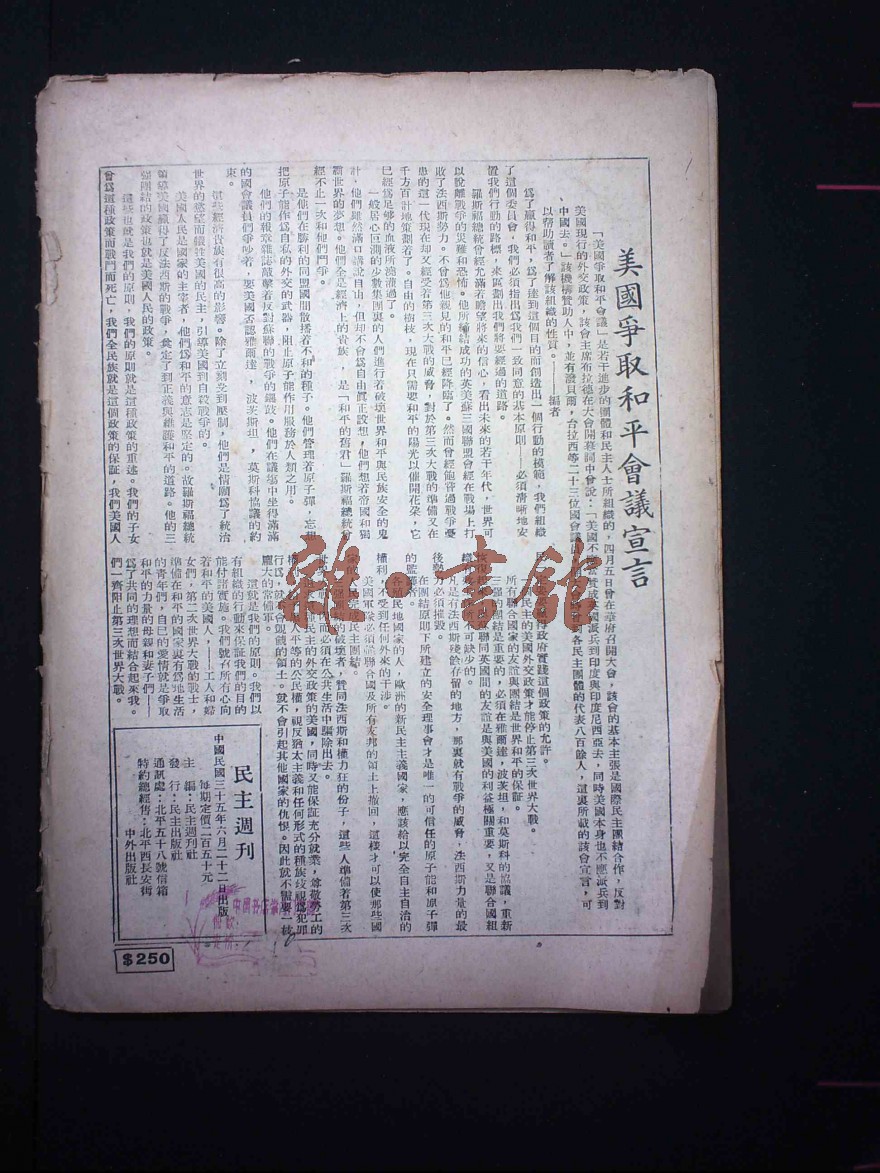 美國爭取和平會議宣言
「美國爭取和平會議」是若干進步的團體和民主人士所組織的，四月五日曾在華府召開大會，該會的基本主張是國際民主團結合作，反對
美國現行的外交政策，該會主席布拉德在大會開幕詞中曾說：「美國不應
贊成
國派兵到印度與印度尼西亞去，同時美國本身也不應派兵到
中國去。」該機構贊助人中，並有潑貝爾，台拉西等二十三位國會議
各民主團體的代表八百餘人，這裏所載的該會宣言，可
以幫助讀者了解該組織的性質。——編者
為了贏得和平，為了達到這個目的而創造出一個行動的模範，我們組織
了這個委員會，我們必須指出為我們一致同意的基本原則——必須清晰地安
置我們行動的路標，來區劃出我們將要經過的道路。
羅斯福總統曾經充滿着瞻望將來的信心，看出未來的若干年代，世界可
以脫離戰爭的災難和恐怖。他所締結成功的英美蘇三國聯盟會經在戰場上打
敗了法西斯勢力。不會為他親見的和平已經降臨了。然而曾經飽嘗過戰爭憂
患的這一代現在却又經受着第三次大戰的威脅，對於第三次大戰的準備又在
千方百計地策劃着了。自由的樹枝，現在只需要和平的陽光以催開花朵，它
已經為足够的血液所澆灌過了。
一般居心叵測的少數集團裏的人們進行着破壞世界和平與民族安全的鬼
計，他們雖然滿口講說自由，但却不會為自由眞正設想，他們想着帝國和獨
霸世界的夢想。他們全是經濟上的貴族，是「和平的舊君」羅斯福總統曾
經不止一次和他們鬥爭。
是他們在勝利的同盟國間散播着不和的種子。他們管理着原子彈，忘想
把原子能作為自私的外交的武器，阻止原子能作用服務於人類之用。
他們的報章雜誌敲擊着反對蘇聯的戰爭的鑼鼓。他們在議塲中坐得滿滿
的國會議員們爭吵着，要美國否認雅爾達，波茨坦，莫斯科協議的約
束。
這些經濟貴族有很高的影響。除了立刻受到壓制，他們是情願為了統治
世界的慾望而犧牲美國的民主，引導美國到自殺戰爭的。
美國人民是國家的主宰者，他們為和平的意志是堅定的。故羅斯福總統
領導美國贏得了反法西斯的戰爭，奠定了到正義與維護和平的道路。他的三
強團結的政策也就是美國人民的政策。
這些也就是我們的原則，我們的原則就是這種政策的重述。我們的子女
曾為這種政策而戰鬥而死亡，我們全民族就是這個政策的保証，我們美國人
政府實踐這個政策的允許。
民主的美國外交政策才能停止第三次世界大戰。
所有聯合國家的友誼與團結是世界和平的保証。
三強的團結是重要的，必須在雅爾達，波茨坦，和莫斯科的協議，重新
聯同英國間的友誼是與美國的利益極關重要，又是聯合國組
可缺少的。
凡是有法西斯殘餘存留的地方，那裏就有戰爭的威脅，法西斯力量的最
後
必須摧毀。
在團結原則下所建立的安全理事會才是唯一的可信任的原子能和原子彈
的監
者。
各殖民地國家的人，歐洲的新民主主義國家，應該給以完全自主自治的
權利，不受到任何外來的干涉。
美國軍隊必須從聯合國及所有友邦的領土上撤回，這樣才可以使那些國
家
民完成民主團結。
的破壞者，贊同法西斯和權力狂的份子，這些人準備着第三次
世
而必須在公共生活中驅除出去。
民主的外交政策的美國，同時又能保証充分就業，尊敬勞工的
權利，
人平等的公民權，視反猶太主義和任何形式的種族歧視為犯罪
行為，就
會覬覦的領土。就不會引起其他國家的仇恨。因此就不需要一樣
龐大的常備軍。
這就是我們的原則。我們以
有組織的行動來保証我們的目的
能付諸實施。我們號召所有心向
着和平的美國人，——工人和婦
女們，第二次世界大戰的戰士，
準備在和平的國家裏有為地生活
的青年們，自己的愛情就是爭取
和平的力量的母親和妻子們——
為了共同的理想而結合起來我。
們一齊阻止第三次世界大戰。
民主週刊
中國民國三十五年六月二十二日出版
每期定價二百五十元
主編：民主週刊社
發行：民主出版社
通訊處：北平五十八號信箱
特約總經售：北平西長安街
中外出版社
$250
雜·書館
中国书店